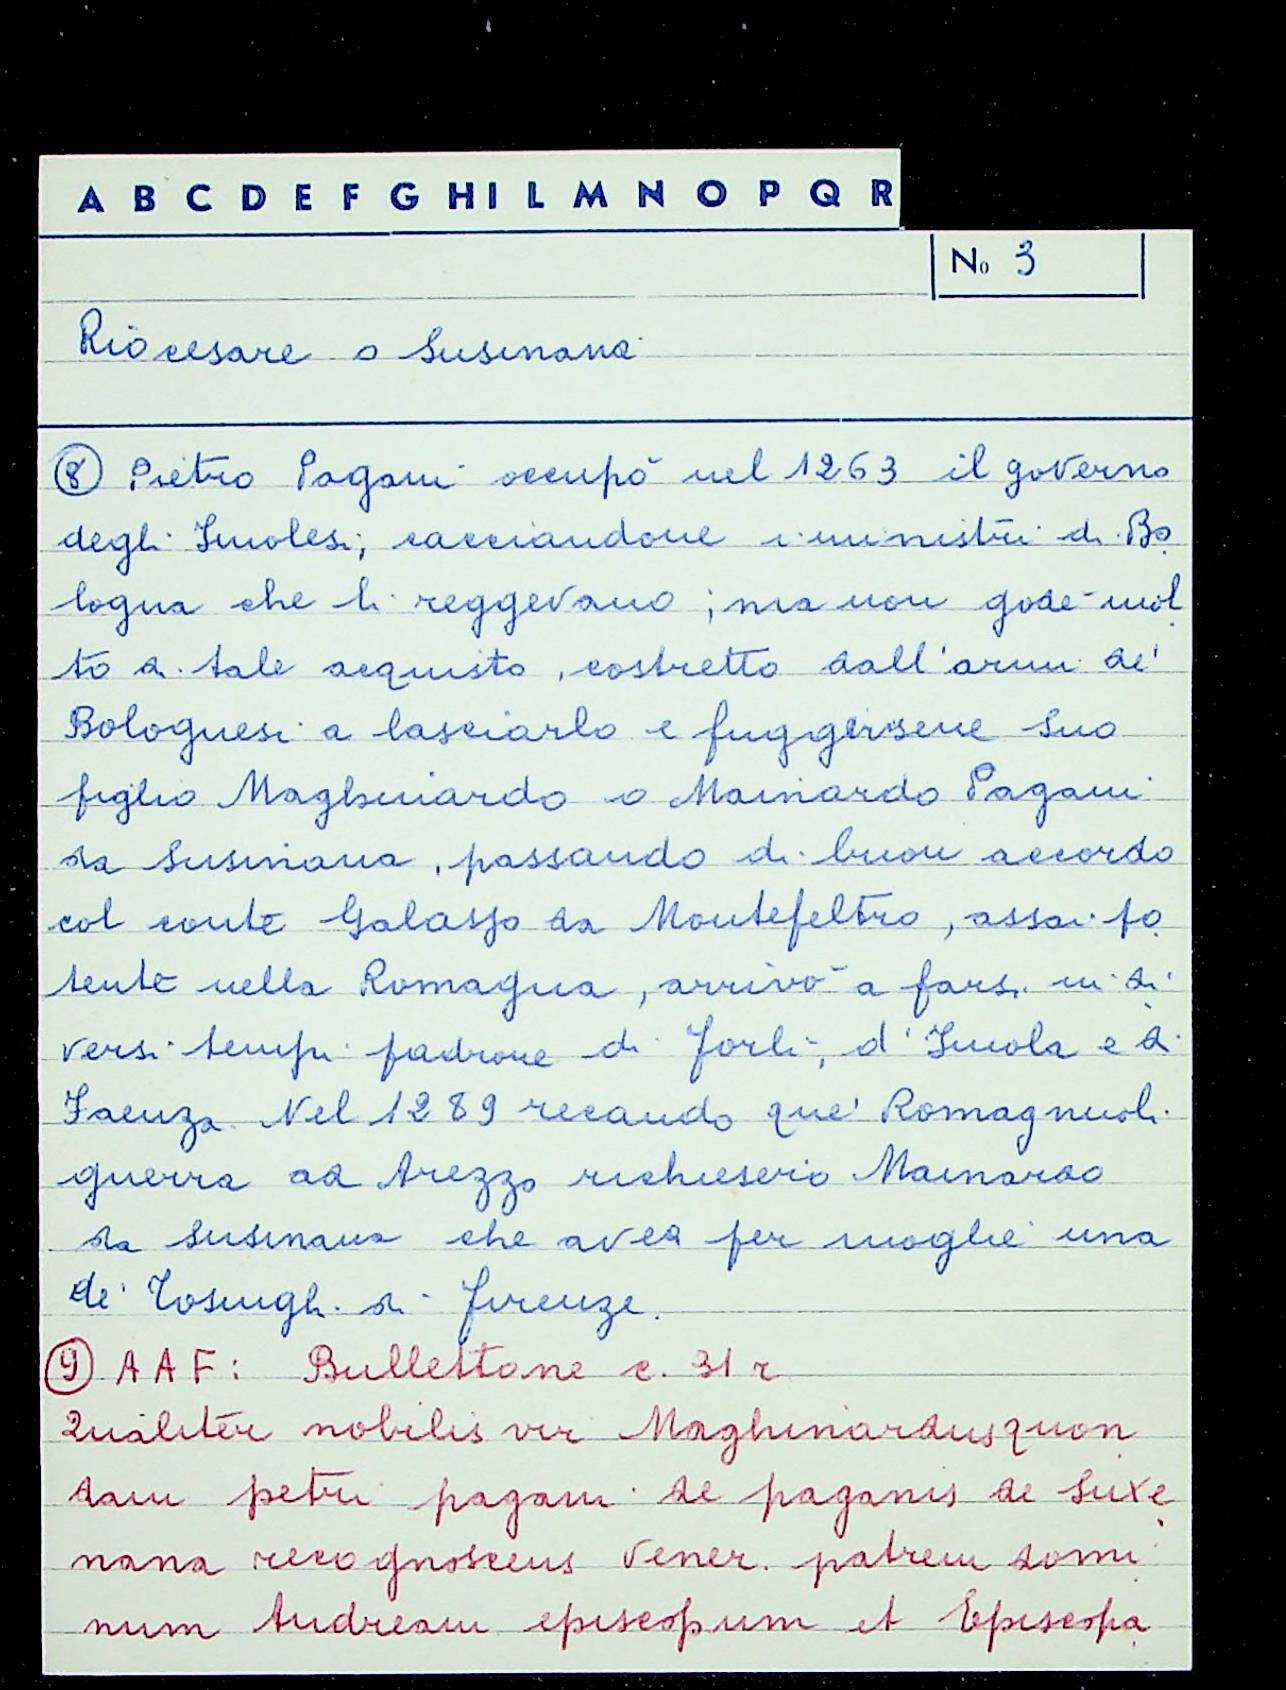 A B C D E F G H I L M N O P Q R
No 3
Riocesare o Susinana
8 Pietro Pagani occupò nel 1263 il governo
degli Imolesi, cacciandone i ministri di Bo
logna che li reggevano; ma non godè mol
to di tale acquisto, costretto dall'armi de'
Bolognesi a lasciarlo e fuggirsene suo
figlio Maghiniardo o Mainardo Pagani
da Susinana, passando di buon accordo
col conte Galasso da Montefeltro, assai po
tente nella Romagna, arrivò a farsi in di
versi tempi padrone di Forlì, d'Imola e di
Faenza. Nel 1289 recando que' Romagnuoli
guerra ad Arezzo richiesero Mainardo
da Susinana che avea per moglie una
de' Tosinghi di Firenze.
9 AAF: Bullettone c. 31 r
Qualiter nobilis vir Maghinardus quon
dam petri pagani de paganis de Suxe
nana recognoscens vener. patrem domi
num Andream episcopum et Episcopa